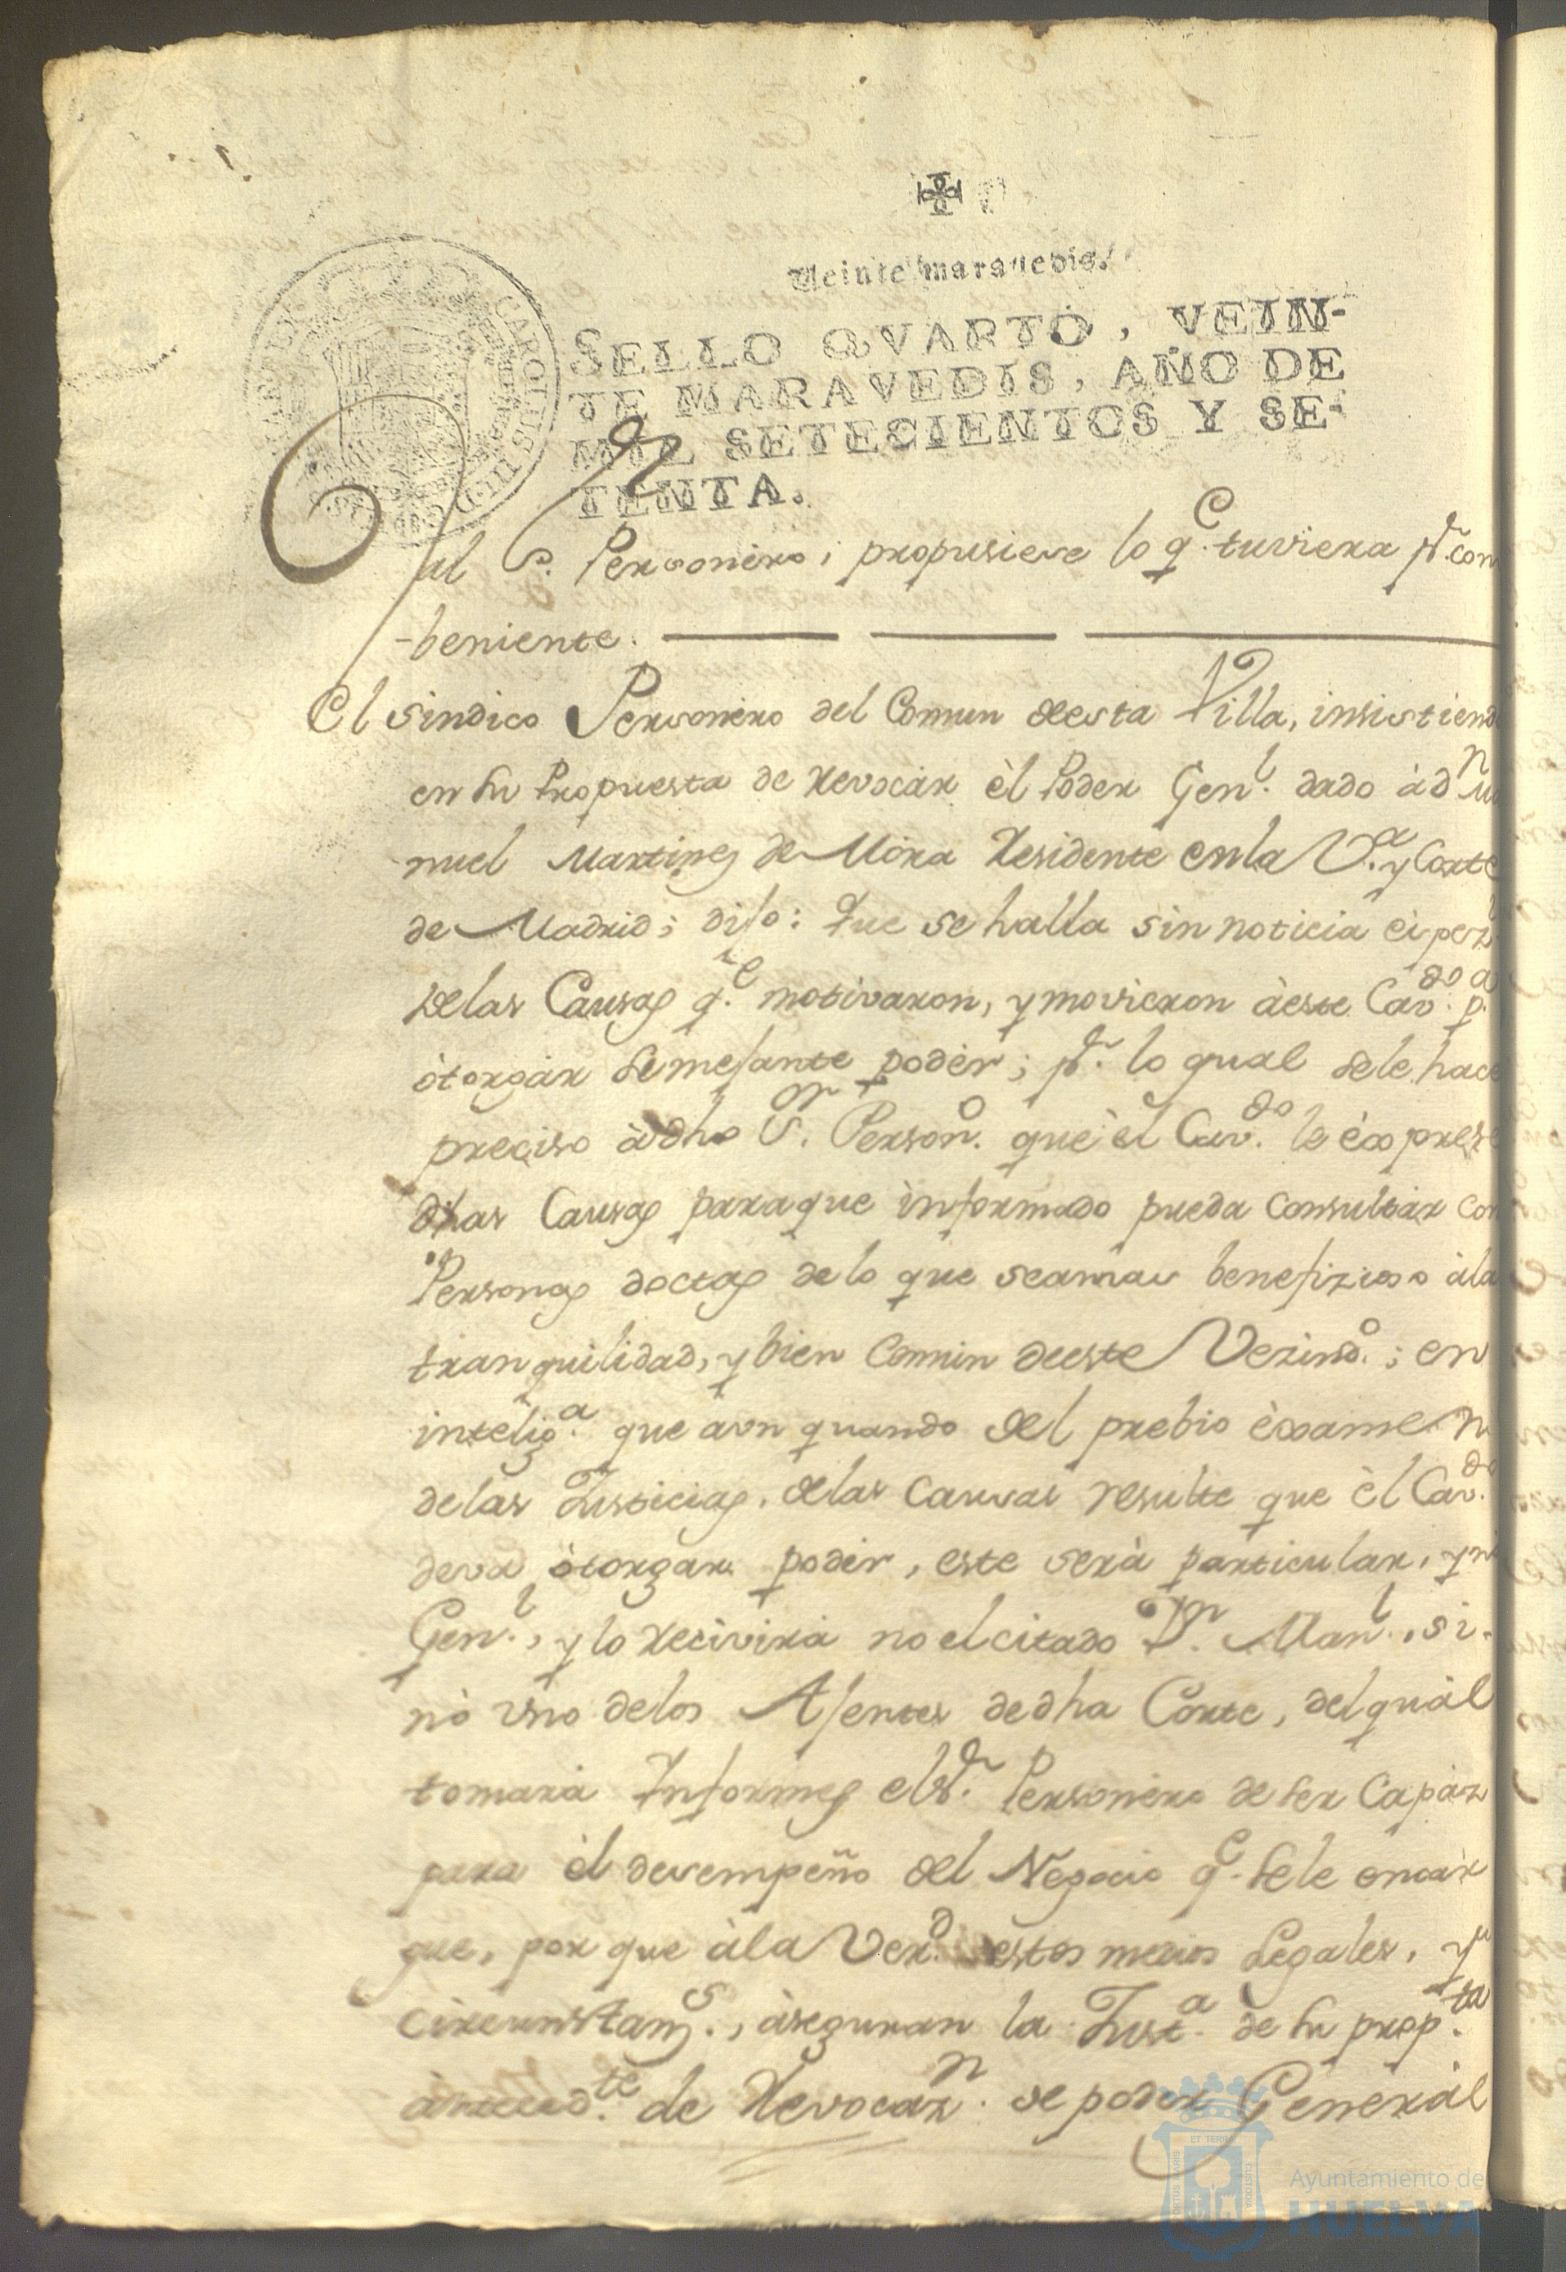 Veinte maravedis.
SELLO QVARTO, VEIN-
TE MARAVEDIS, AÑO DE
MIL SETECIENTOS Y SE-
TENTA.
CAROLUS III D G
al S.r Personero, propusiese lo q.e tuviera p.r com
-beniente.
El sindico Personero del Comun deesta Villa, insistiend
en su Propuesta de Revocar èl Poder Gen.l dado à d.n
nuel Martinez de Mora Residente en la V.a y Corte
de Madrid; dijo: que se halla sin noticia
delas Causas q.e motivaron, y movieron àeste Cav.do p.a
otorgar semejante poder; p.r lo qual sele hace
preciso àdho S.or Person.o que èl Cav.do le èxprese
dhas Causas paraque informado pueda consultar con
Personas doctas delo que seamas benefizioso àla
tranquilidad, y bien Comun deeste Vezind.o; en
intelig.a que aun quando del prebio èxamen
delas Justicias, delas causas resulte que èl Cav.do
deva òtorgar poder, este serà particular, y no
Gen.l, y lo Recivirà no el citado D.n Man.l, si-
nò uno delos Ajentes dedha Corte, del quàl
tomarà Informes el S.r Personèro de ser Capàz
para èl desempeño del Negocio q.e sele encàr
gue, por que àla Ver.d estos medios Legales, y
circunstanz.s, àseguran la Just.a de su prop.ta
àntecced.te de Revocaz.n de poder General
Ayuntamiento de
HUELVA